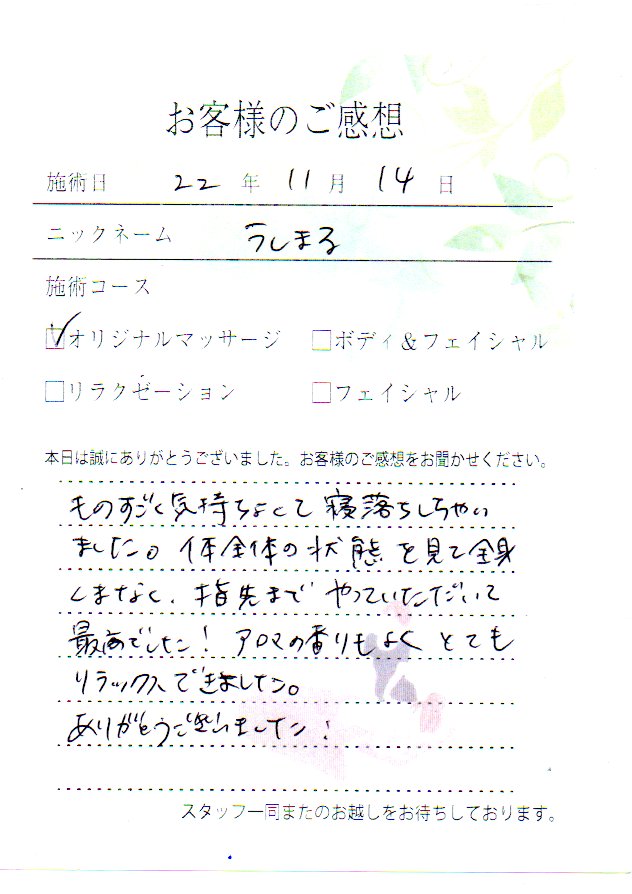 お客様のご感想
施術日 22 年 11 月 14 日
ニックネーム うしまる
施術コース
オリジナルマッサージ ボディ&フェイシャル
リラクゼーション フェイシャル
本日は誠にありがとうございました。お客様のご感想をお聞かせください。
ものすごく気持ちよくて寝落ちしちゃい
ました。体全体の状態を見て全身
くまなく、指先までやっていただいて
最高でした! アロマの香りもよく とても
リラックスできました。
ありがとうございました!
スタッフ一同またのお越しをお待ちしております。